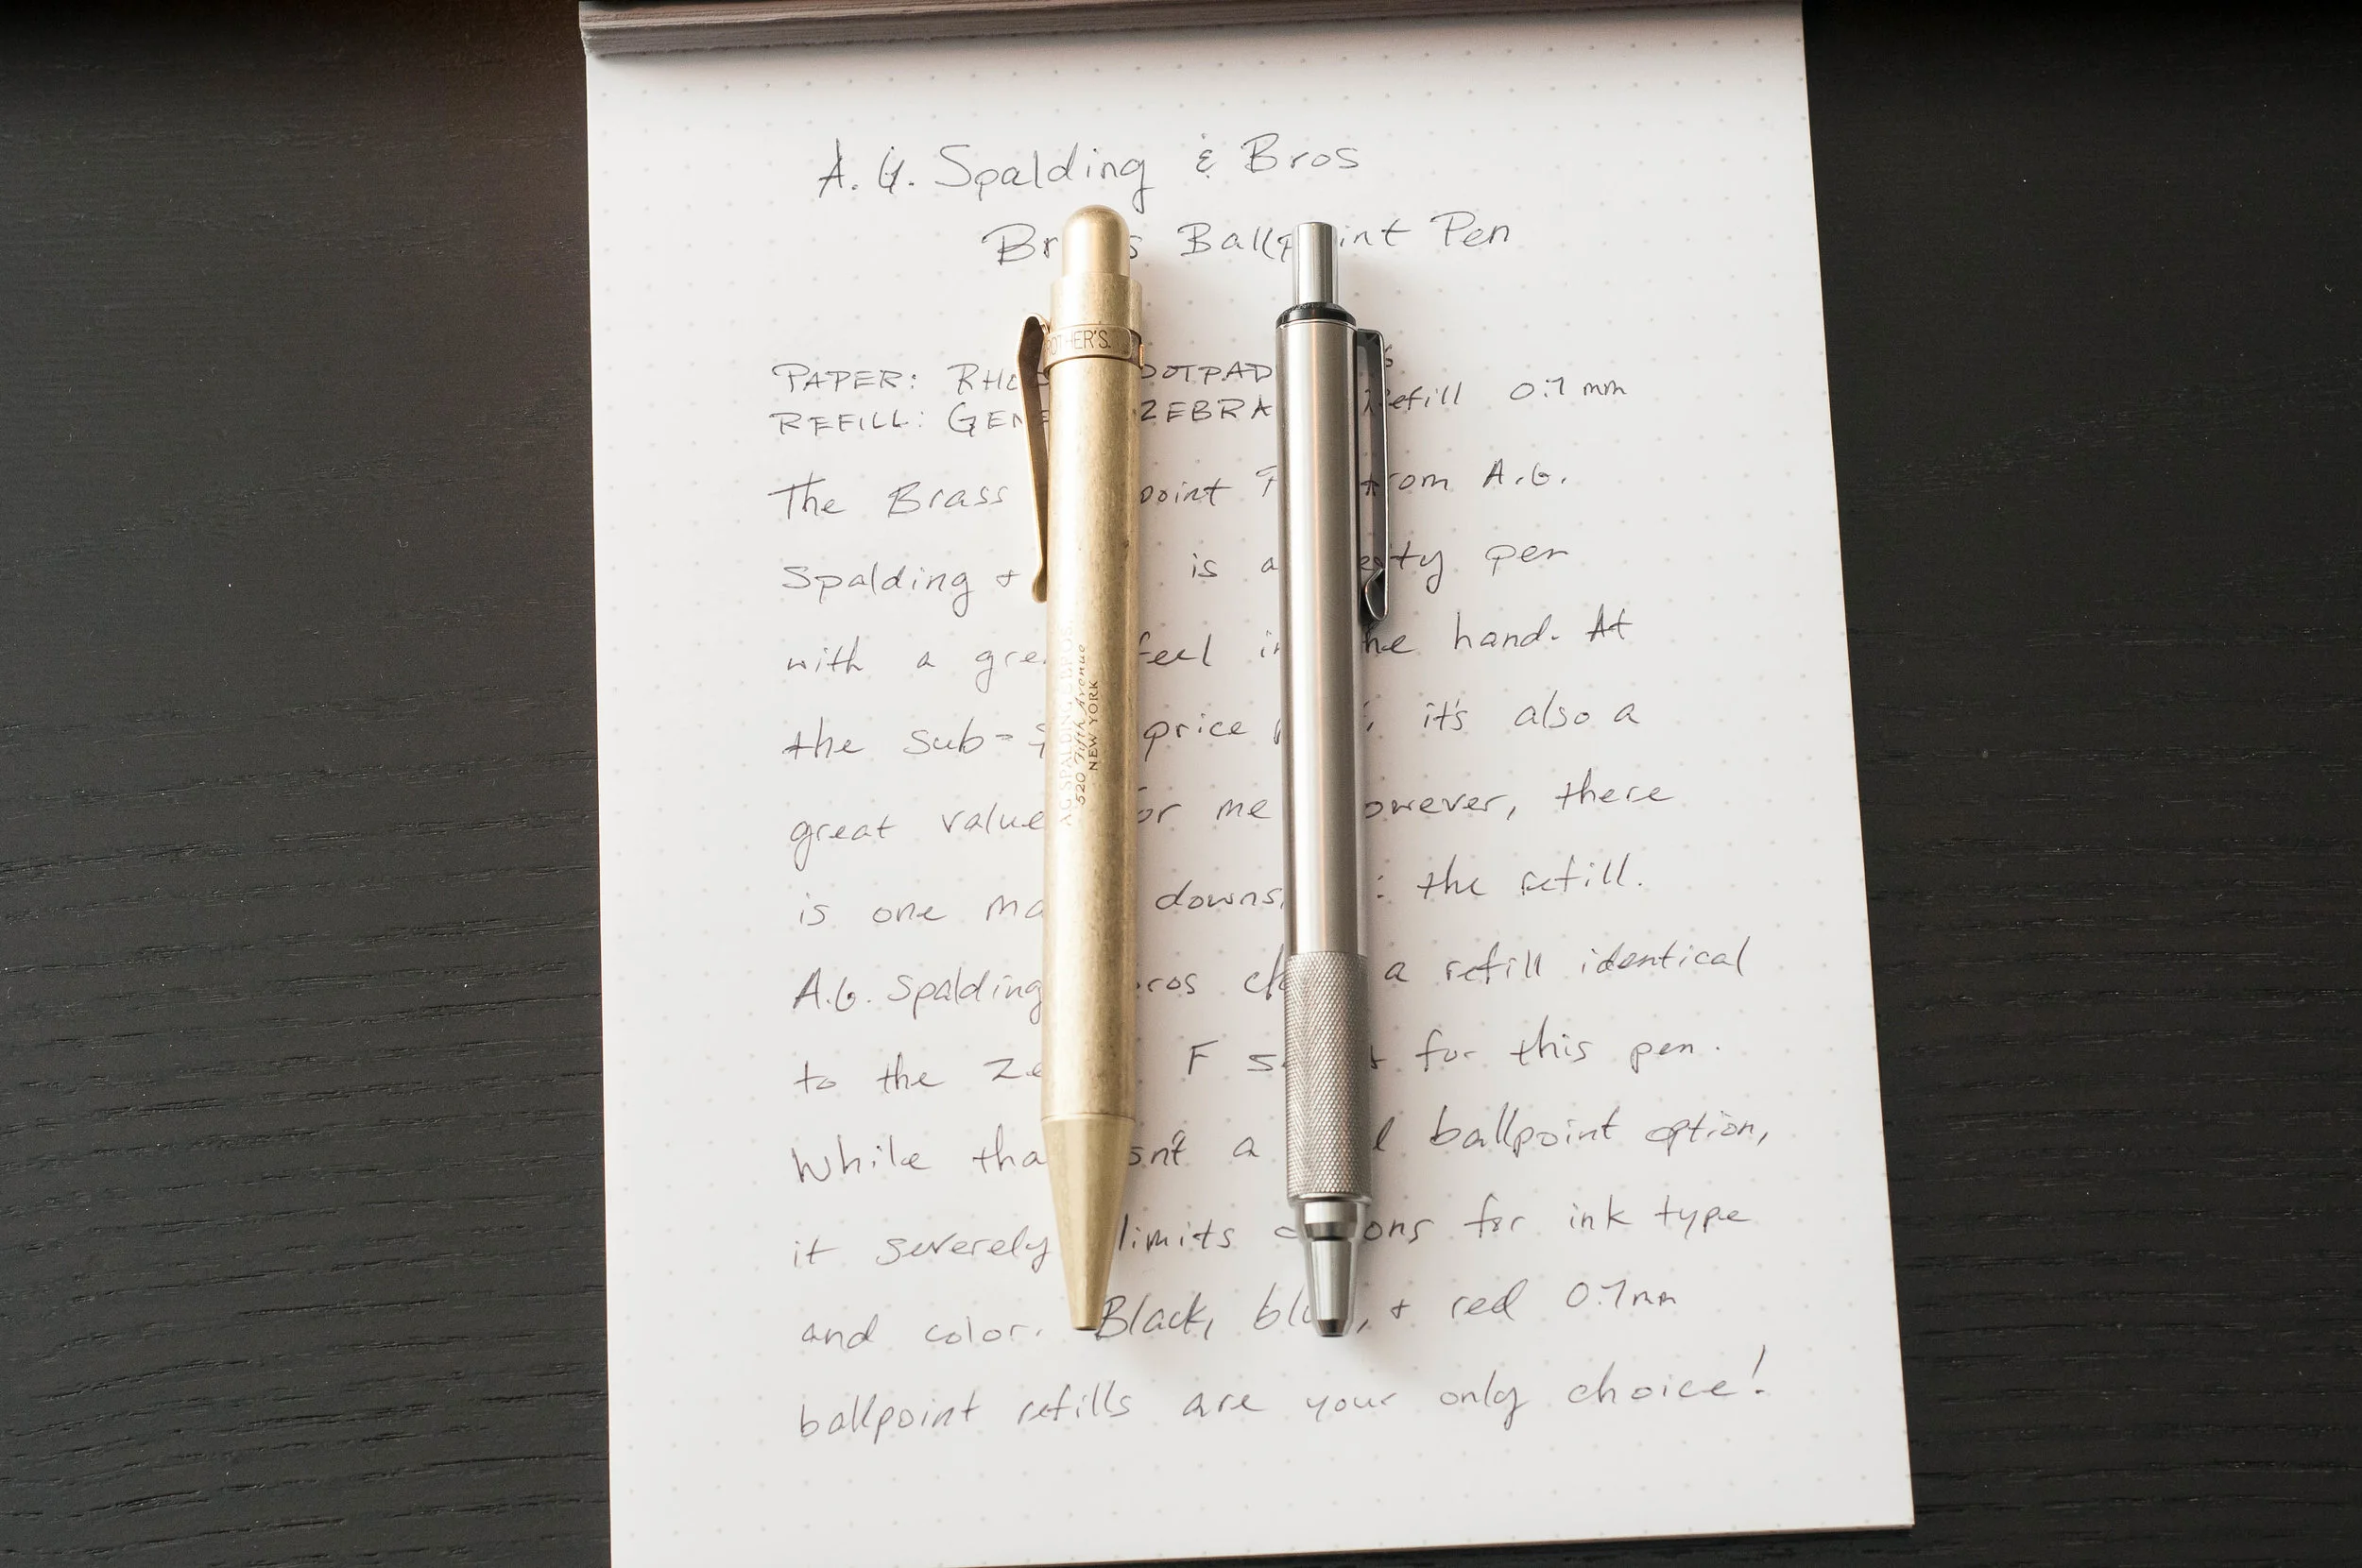 A.G. Spalding & Bros
Ballpoint Pen
PAPER: DOTPAD
REFILL: ZEBRA Refill 0.7 mm
The Brass from A.G.
Spalding + is a pen
with a feel in the hand. At
the sub- price it's also a
great value for me However, there
is one the refill.
A.G. Spalding Bros a refill identical
to the F for this pen.
While a ballpoint option,
it severely limits for ink type
and color. Black, blue, + red 0.7mm
ballpoint refills are your only choice!
OTHER'S.
A.G. SPALDING & BROS.
520 Fifth Avenue
NEW YORK